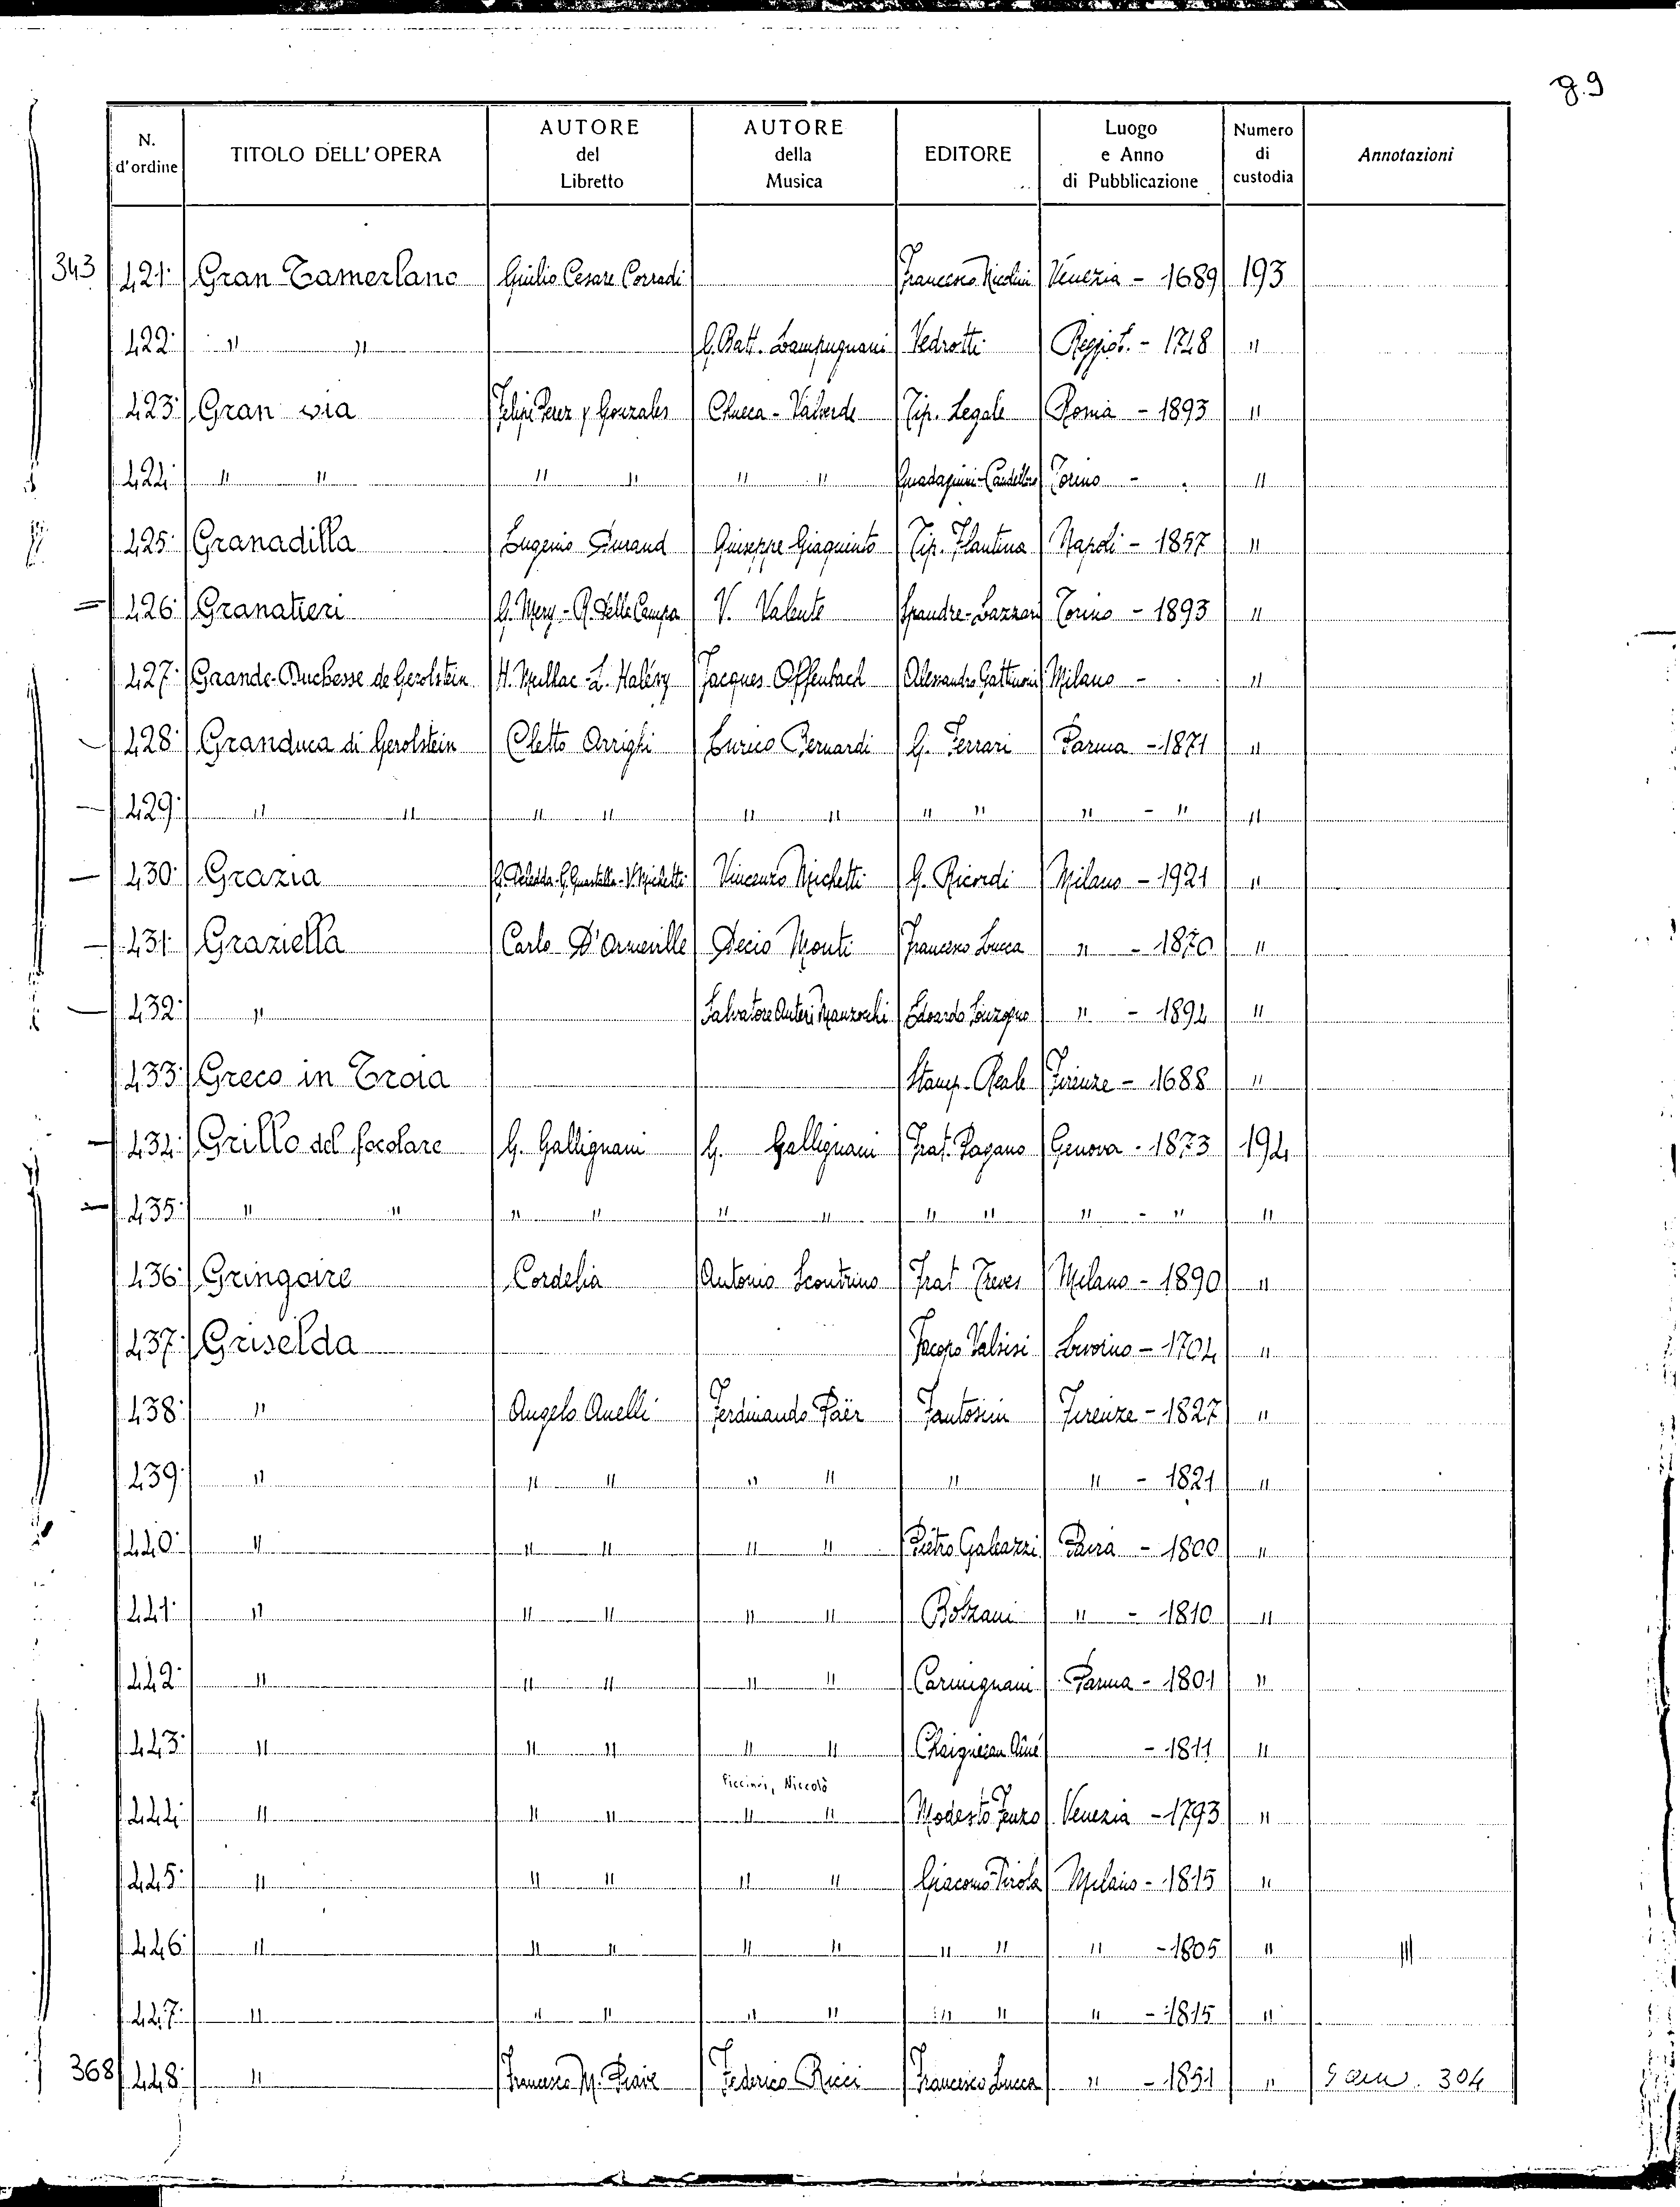 g.9
N. d'ordine | TITOLO DELL'OPERA | AUTORE del Libretto | AUTORE della Musica | EDITORE | Luogo e Anno di Pubblicazione | Numero di custodia | Annotazioni
343 421 Gran Tamerlano Giulio Cesare Corradi Francesco Nicolini Venezia - 1689 193
422 " " G. Batt. Lampugnani Vedrotti Reggio E. - 1748 "
423 Gran via Felipe Perez y Gonzales Chueca - Valverde Tip. Legale Roma - 1893 "
424 " " " " " " Guadagnini-Candellero Torino - "
425 Granadilla Eugenio Durand Giuseppe Giaquinto Tip. Plantina Napoli - 1857 "
426 Granatieri G. Mery - R. Della Campa V. Valente Grandre-Lazzari Torino - 1893 "
427 Grande-Duchesse de Gerolstein H. Meilhac - L. Halévy Jacques Offenbach Alessandro Gattinoni Milano - "
428 Granduca di Gerolstein Cletto Arrighi Enrico Bernardi G. Ferrari Parma - 1871 "
429 " " " " " " " " " - " "
430 Grazia G. Deledda-G. Guastalla-V. Michetti Vincenzo Michetti G. Ricordi Milano - 1921 "
431 Graziella Carlo D'Ormeville Decio Monti Francesco Lucca " - 1870 "
432 " Salvatore Auteri Manzocchi Edoardo Sonzogno " - 1894 "
433 Greco in Troia Stamp. Reale Firenze - 1688 "
434 Grillo del focolare G. Gallignani G. Gallignani Frat. Pagano Genova - 1873 194
435 " " " " " " " " " - " "
436 Gringoire Cordelia Antonio Scontrino Frat Treves Milano - 1890 "
437 Griselda Jacopo Valsisi Livorno - 1704 "
438 " Angelo Anelli Ferdinando Paër Fantosini Firenze - 1827 "
439 " " " " " " " - 1821 "
440 " " " " " Pietro Galeazzi Pavia - 1800 "
441 " " " " " Bolzani " - 1810 "
442 " " " " " Carmignani Parma - 1801 "
443 " " " " " Chaigneau Ainé - 1811 "
Piccinni, Niccolò
444 " " " " " Modesto Fenzo Venezia - 1793 "
445 " " " " " Giacomo Pirola Milano - 1815 "
446 " " " " " " " " - 1805 "
447 " " " " " " " " - 1815 "
368 448 " Francesco M. Piave Federico Ricci Francesco Lucca " - 1851 " 304